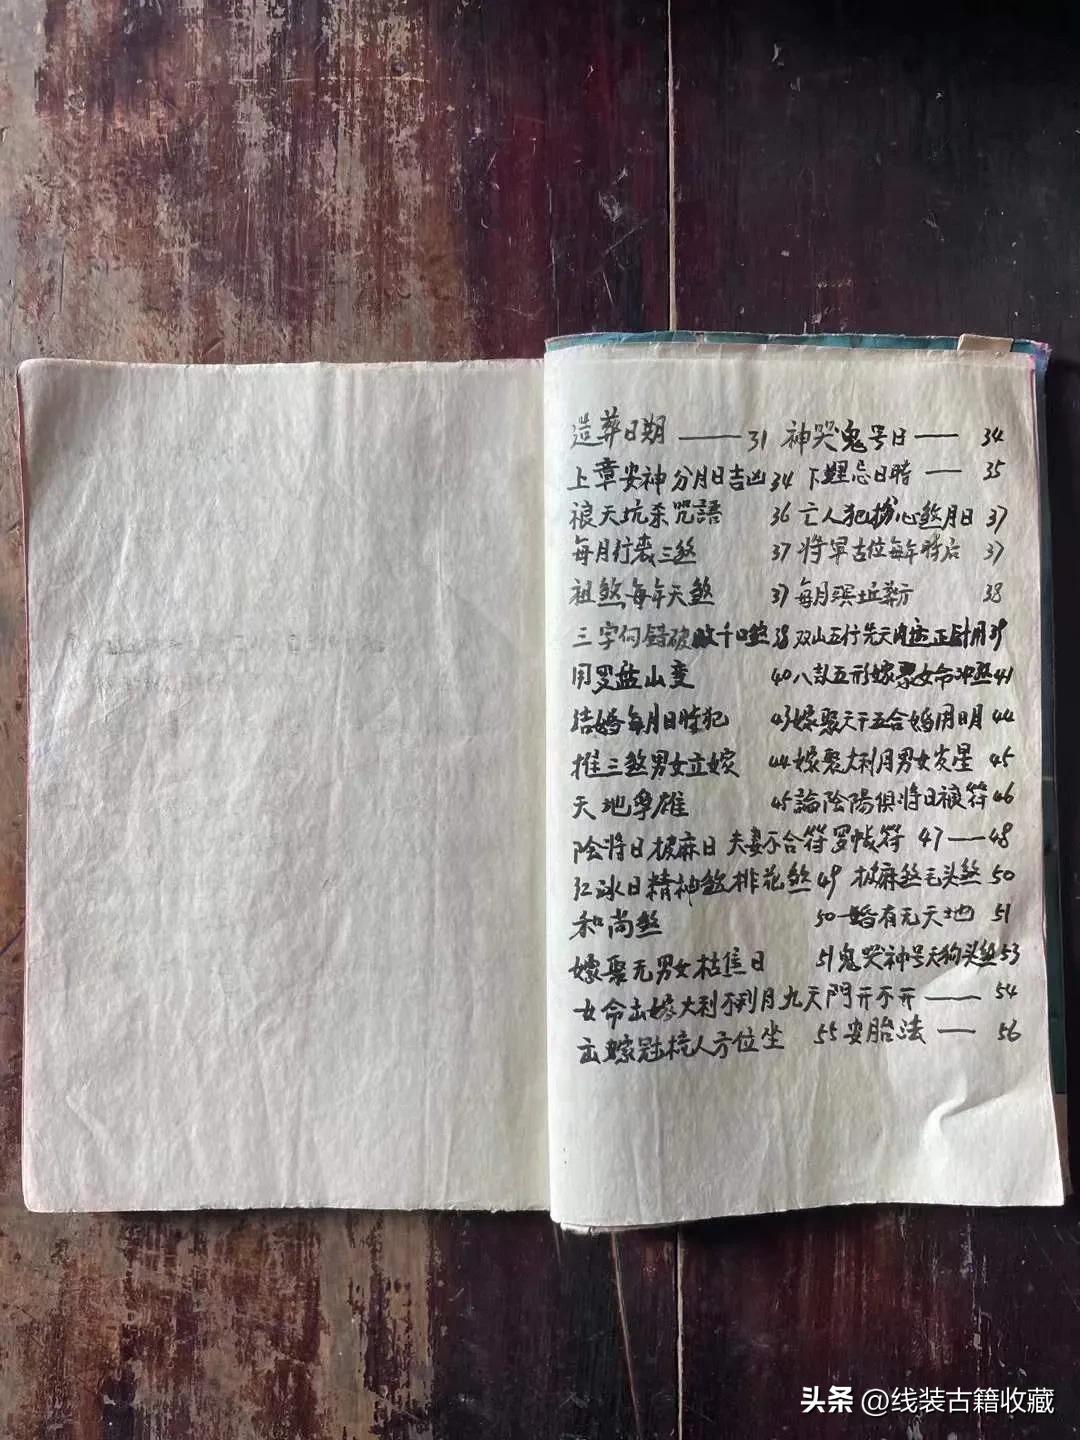 造葬日期 —— 31 神哭鬼号日 — 34
上章安神分月日吉凶 34 下 忌日時 — 35
天坑杀咒語 36 亡人犯 心煞月日 37
每月行喪三煞 37 将軍占位每年時后 37
祖煞每年天煞 37 每月 方 38
三字何錯破敗千口煞 38 双山五行先天 正針用 39
用罗盘山变 40 八卦五形嫁娶女命冲煞 41
结婚每月日時犯 43 嫁娶天干五合婚用日月 44
推三煞男女立嫁 44 嫁娶大利月男女 星 45
天地孛雄 45 論陰陽俱将日被符 46
陰将日披麻日 夫妻不合符罗帐符 47 — 48
红冰日精神煞排花煞 49 披麻煞毛头煞 50
和尚煞 50 婚有无天地 51
嫁娶无男女枯焦日 51 鬼哭神号天狗头煞 53
女命出嫁大利不利月九天門开不开 —— 54
出嫁冠梳人方位坐 55 安胎法 — 56
头条 @线装古籍收藏